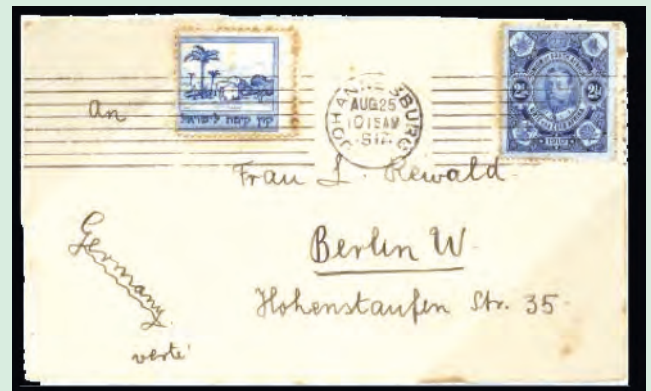 קרן קימת לישראל
JOHANNESBURG
AUG 25
1015 AM
UNION OF SOUTH AFRICA
2½
2½
1910
An
Frau L. Rewald
Berlin W
Hohenstaufen Str. 35
Germany
verte